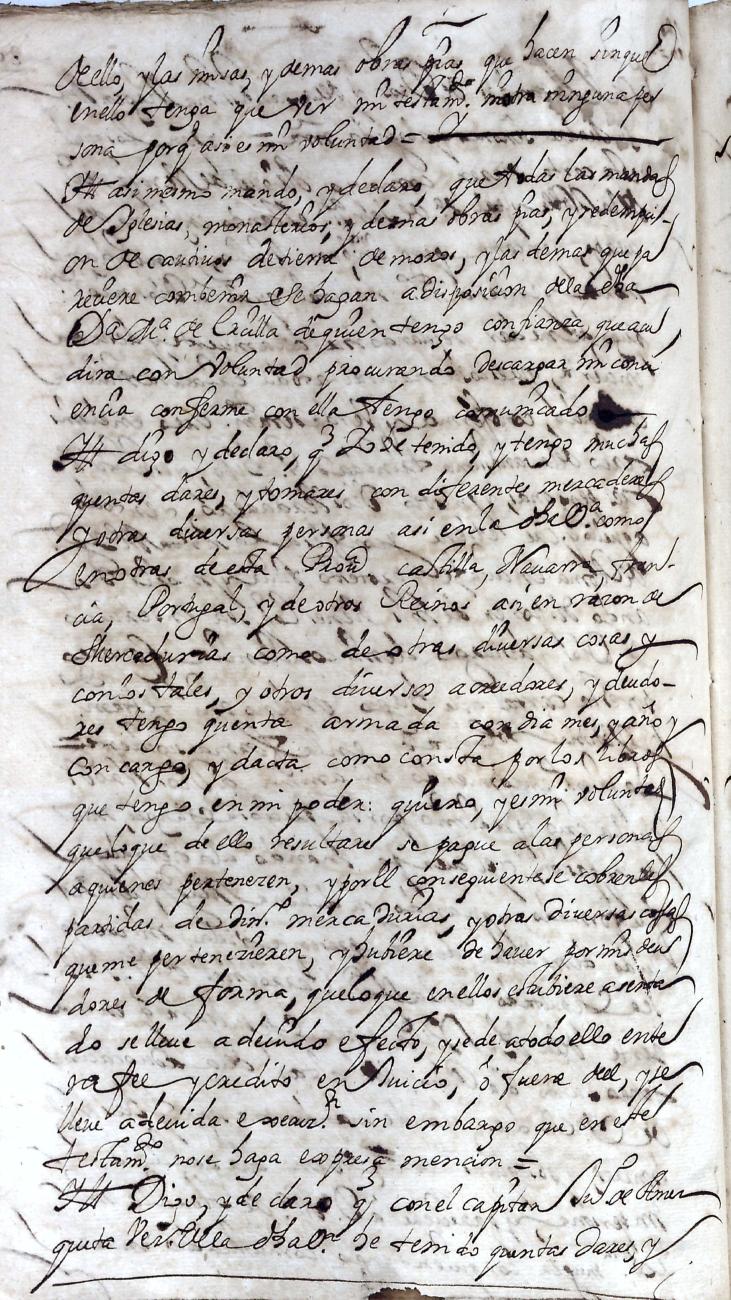 de ello, y las misas, y demas obras pias que hacen sin que
en ello tenga que ver mi testamto. ni otra ninguna per
sona porq asi es mi voluntad =
Itt asi mesmo mando, y declaro, que todas las mandas
de Yglesias, monasterios, y demas obras pias, y redempsi-
on de cautivos de tierra de moros, y las demas que pa
reziere combenir se hagan a disposicion de la dha
Da. Ma. de de quien tengo confianza, que acu
dira con voluntad procurando descargar mi conci
encia conforme con ella tengo comunicado
Itt digo y declaro, q Yo he tenido, y tengo muchas
quentas dares, y tomares con diferentes mercaderes
y otras diversas personas asi en la dha Va. como
en otras de esta Prova castilla, Navarra, Fran-
cia, Portugal, y de otros Reinos asi en razon de
Mercadurias como de otras diversas cosas, y
con los tales, y otros diversos acreedores, y deudo-
res tengo quenta armada con dia mes, y año y
con cargo, y dacta como consta por los libros
que tengo en mi poder: quiero, y es mi voluntad
que lo que de ello resultare se pague a las personas
a quienes pertenezen, y por ll consequiente se cobren las
partidas de dinro. mercadurias, y otras diversas cosas
que me pertenezieren, y hubiere de haver por mis deu
dores de forma, que lo que en ellos estubiere asenta
do se lleve a devido efecto, y se de a todo ello ente
ra fee y credito en Juicio, ó fuera del, y se
lleve a devida execuon. sin embargo que en este
testamto. no se haga expresa mencion =
Itt Digo, y declaro q con el capitan de Amez
queta Vez. de la dha Va. he tenido quentas dares, y